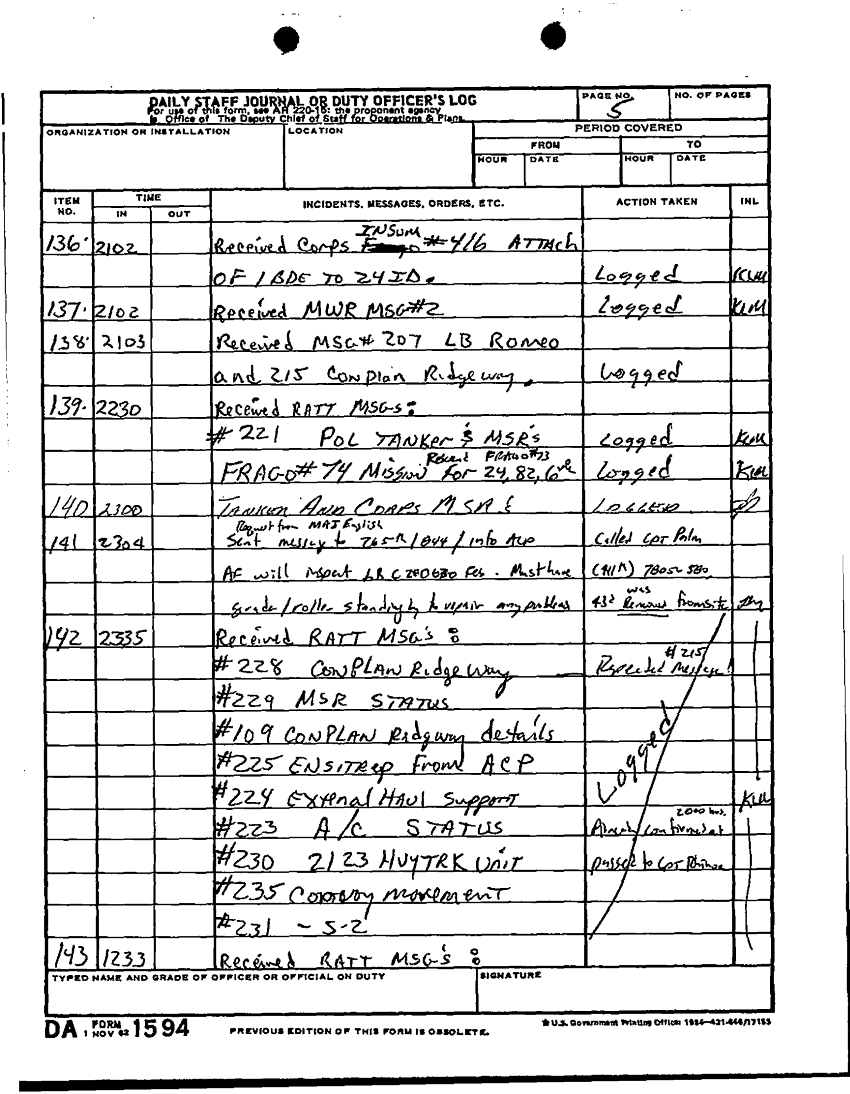 DAILY STAFF JOURNAL OR DUTY OFFICER'S LOG
For use of this form, see AR 220-15: the proponent agency
is Office of The Deputy Chief of Staff for Operations & Plans.
PAGE NO.
5
NO. OF PAGES
ORGANIZATION OR INSTALLATION
LOCATION
PERIOD COVERED
FROM
TO
HOUR DATE HOUR DATE
ITEM NO. TIME INCIDENTS, MESSAGES, ORDERS, ETC. ACTION TAKEN INL
IN OUT
INSUM
136 2102 Received Corps #416 ATTACH
OF 1 BDE TO 24 ID. Logged KLM
137 2102 Received MWR MSG#2 Logged KLM
138 2103 Received MSG# 207 LB Romeo
and 215 Conplan Ridgeway. Logged
139 2230 Received RATT MSG's:
#221 POL TANKER & MSR's Logged KLM
FRAGO#73
FRAGO# 74 Mission For 24, 82, 6 Logged KLM
140 2300 TANKER AND CORPS MSR LOGGED
Request from MAJ English
141 2304 Sent message to 265th / 844 / info ACP Called CPT Palm
AF will inspect 0630 Feb. Must have
was
grade/roller standing by to repair any problems 43d Removed from site
142 2335 Received RATT MSG's:
#215
#228 CONPLAN Ridgeway Message!
#229 MSR STATUS
#109 CONPLAN Ridgway details
#225 ENSITREP From ACP Logged
#224 External Haul Support KLM
2000 hrs.
#223 A/C STATUS Already confirmed at
#230 2123 HVYTRK UNIT passed to CPT
#235 Convoy movement
#231 - S-2
143 1233 Received RATT MSG's:
TYPED NAME AND GRADE OF OFFICER OR OFFICIAL ON DUTY
SIGNATURE
DA FORM 1594
1 NOV 62
PREVIOUS EDITION OF THIS FORM IS OBSOLETE.
U.S. Government Printing Office: